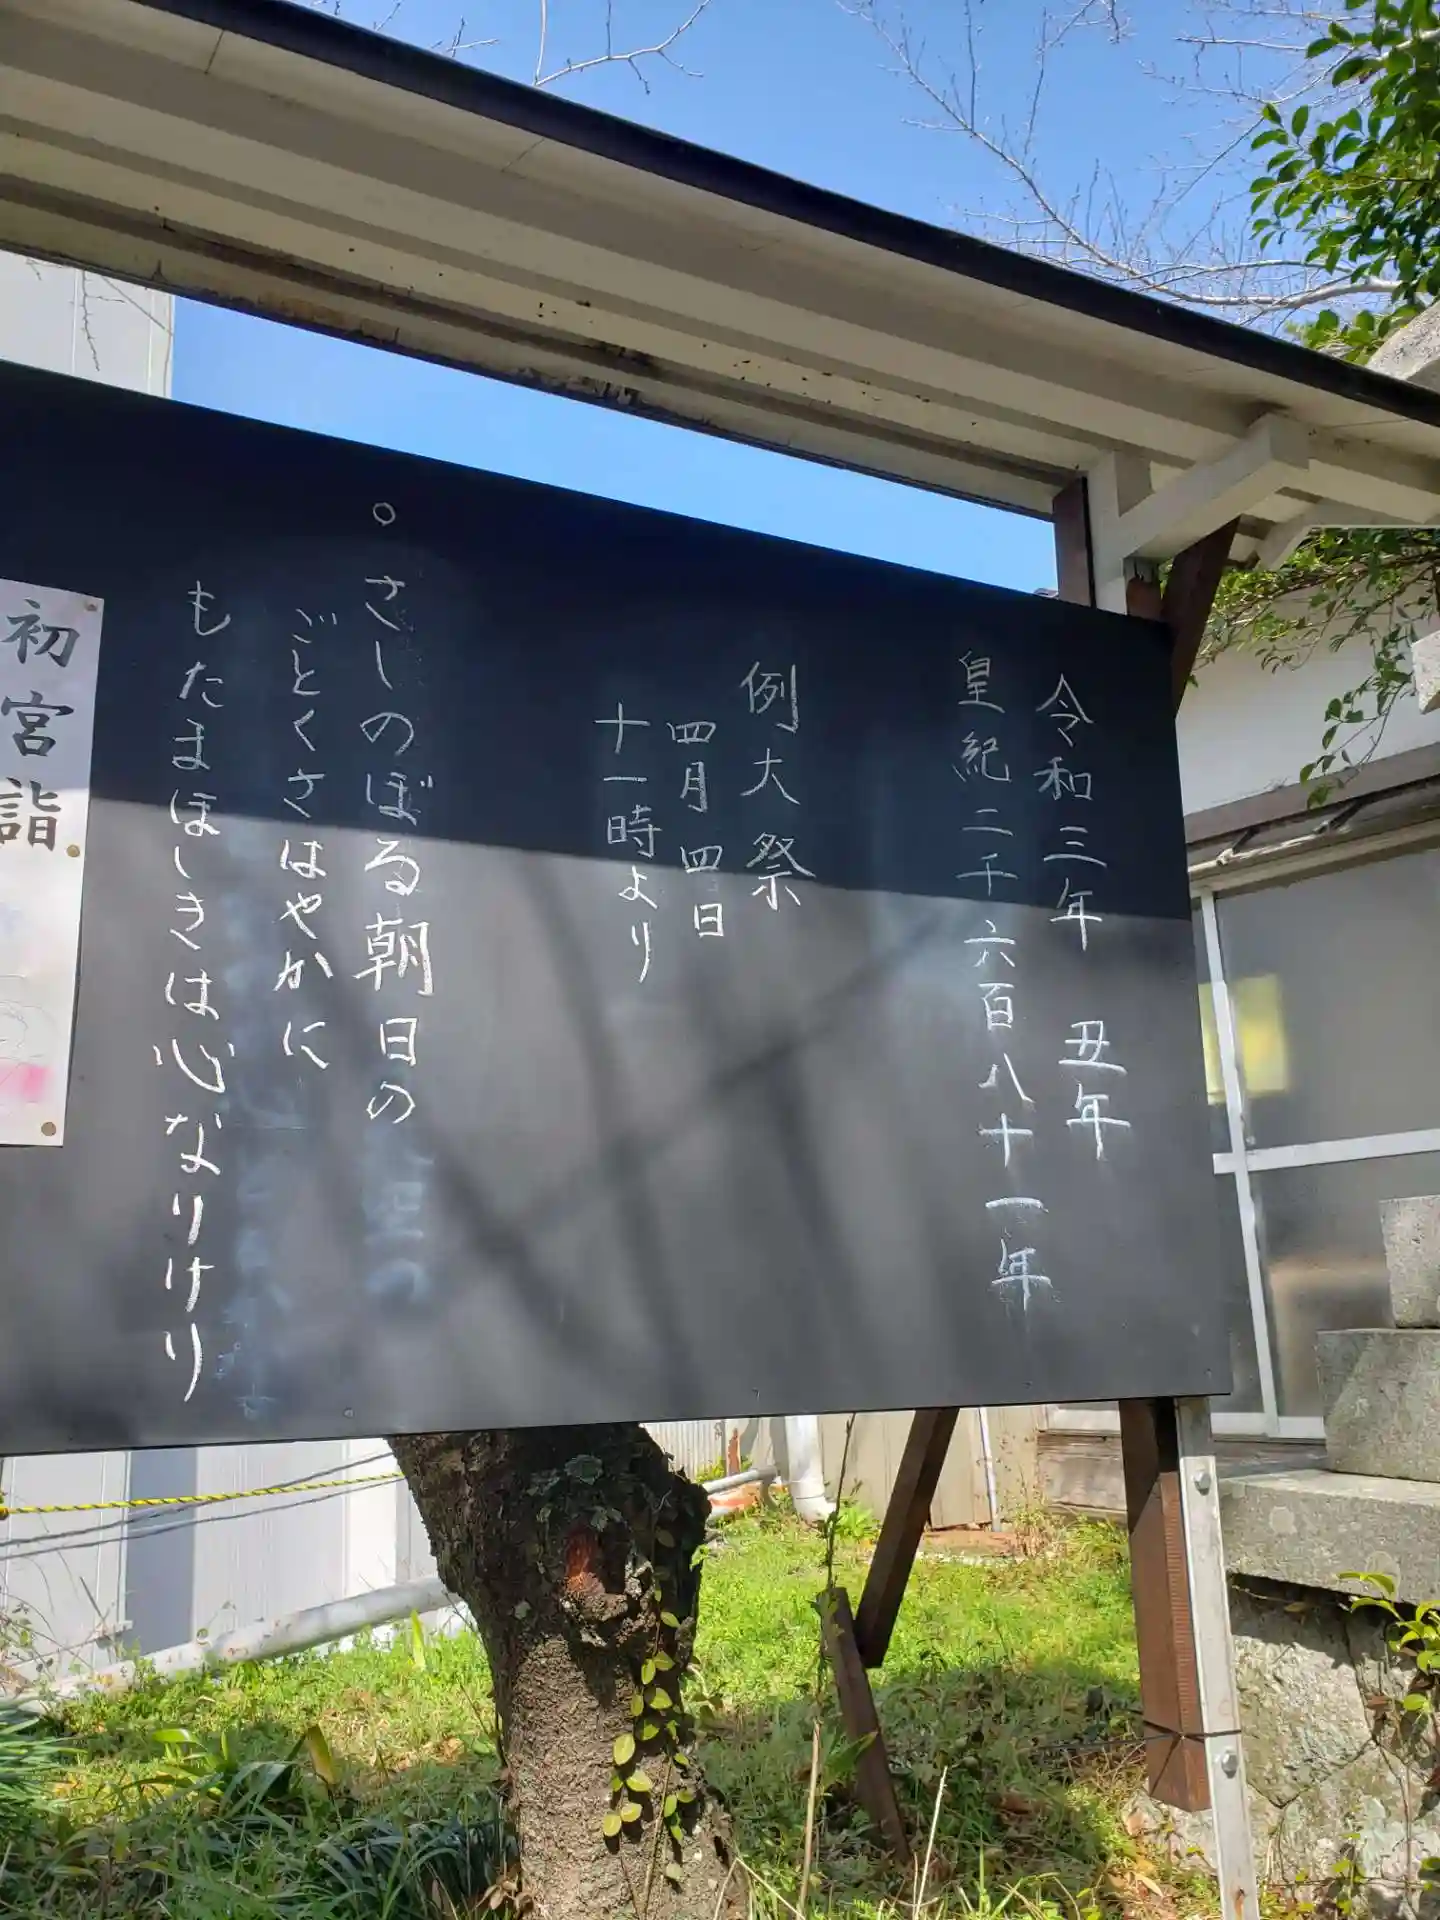 令和三年 丑年
皇紀二千六百八十一年
例大祭
四月四日
十一時より
○さしのぼる朝日の
ごとくさはやかに
もたまほしきは心なりけり
初宮詣